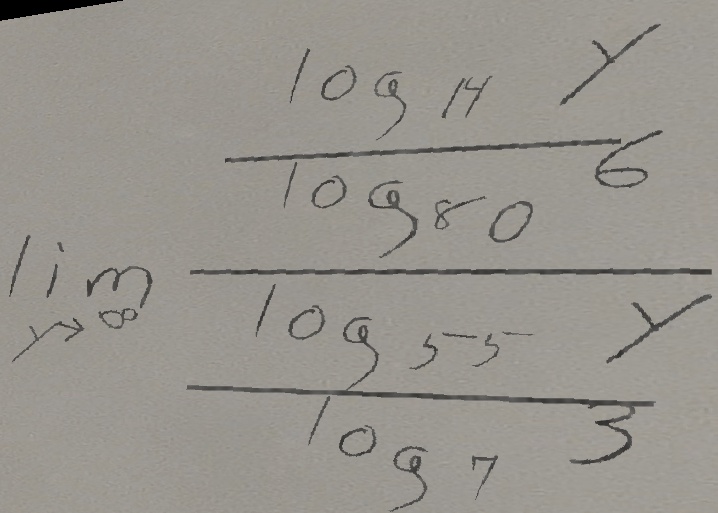 \lim_{y \to \infty} \frac{\frac{\log_{14} y}{\log_{80} 6}}{\frac{\log_{55} y}{\log_{7} 3}}